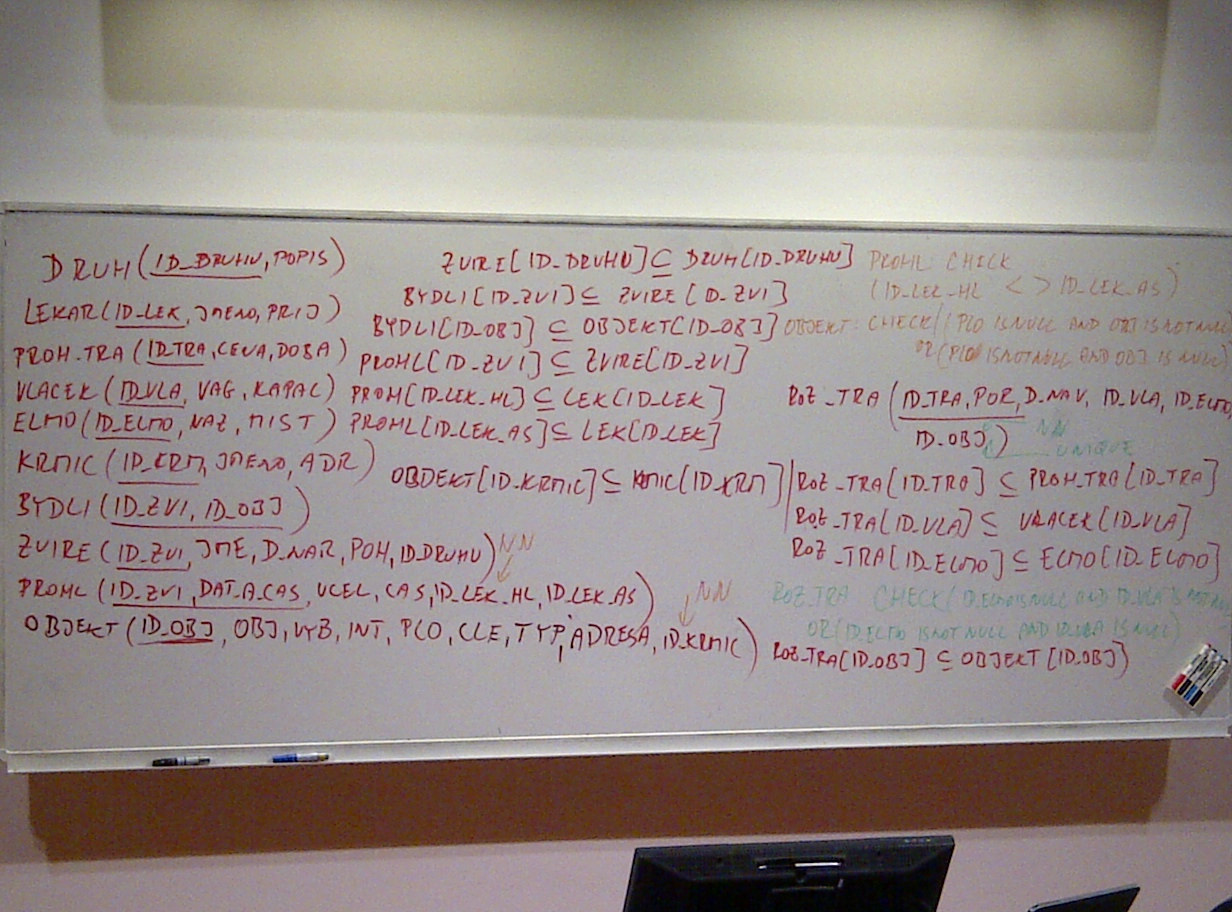 DRUH (ID_DRUHU, POPIS)
LEKAR (ID_LEK, JMENO, PRIJ)
PROH_TRA (ID_TRA, CENA, DOBA)
VLACEK (ID_VLA, VAG, KAPAC)
ELMO (ID_ELMO, NAZ, MIST)
KRMIC (ID_KRM, JMENO, ADR)
BYDLI (ID_ZVI, ID_OBJ)
ZVIRE (ID_ZVI, JME, D_NAR, POH, ID_DRUHU) NN
PROHL (ID_ZVI, DAT_A_CAS, UCEL, CAS, ID_LEK_HL, ID_LEK_AS)
OBJEKT (ID_OBJ, OBJ, VYB, INT, PLO, CLE, TYP, ADRESA, ID_KRMIC) NN
ZVIRE[ID_DRUHU] ⊆ DRUH[ID_DRUHU]
BYDLI[ID_ZVI] ⊆ ZVIRE[ID_ZVI]
BYDLI[ID_OBJ] ⊆ OBJEKT[ID_OBJ]
PROHL[ID_ZVI] ⊆ ZVIRE[ID_ZVI]
PROH[ID_LEK_HL] ⊆ LEK[ID_LEK]
PROHL[ID_LEK_AS] ⊆ LEK[ID_LEK]
OBJEKT[ID_KRMIC] ⊆ KMIC[ID_KRM]
PROHL: CHECK
(ID_LEK_HL <> ID_LEK_AS)
OBJEKT: CHECK((PLO IS NULL AND OBJ IS NOT NULL
OR (PLO IS NOT NULL AND OBJ IS NULL)
ROZ_TRA (ID_TRA, POR, D_NAV, ID_VLA, ID_ELMO,
ID_OBJ) NN
UNIQUE
ROZ_TRA[ID_TRA] ⊆ PROH_TRA[ID_TRA]
ROZ_TRA[ID_VLA] ⊆ VLACEK[ID_VLA]
ROZ_TRA[ID_ELMO] ⊆ ELMO[ID_ELMO]
ROZ_TRA CHECK(ID_ELMO IS NULL AND ID_VLA IS NOT NU
OR (ID_ELMO IS NOT NULL AND ID_VLA IS NULL)
ROZ_TRA[ID_OBJ] ⊆ OBJEKT[ID_OBJ]